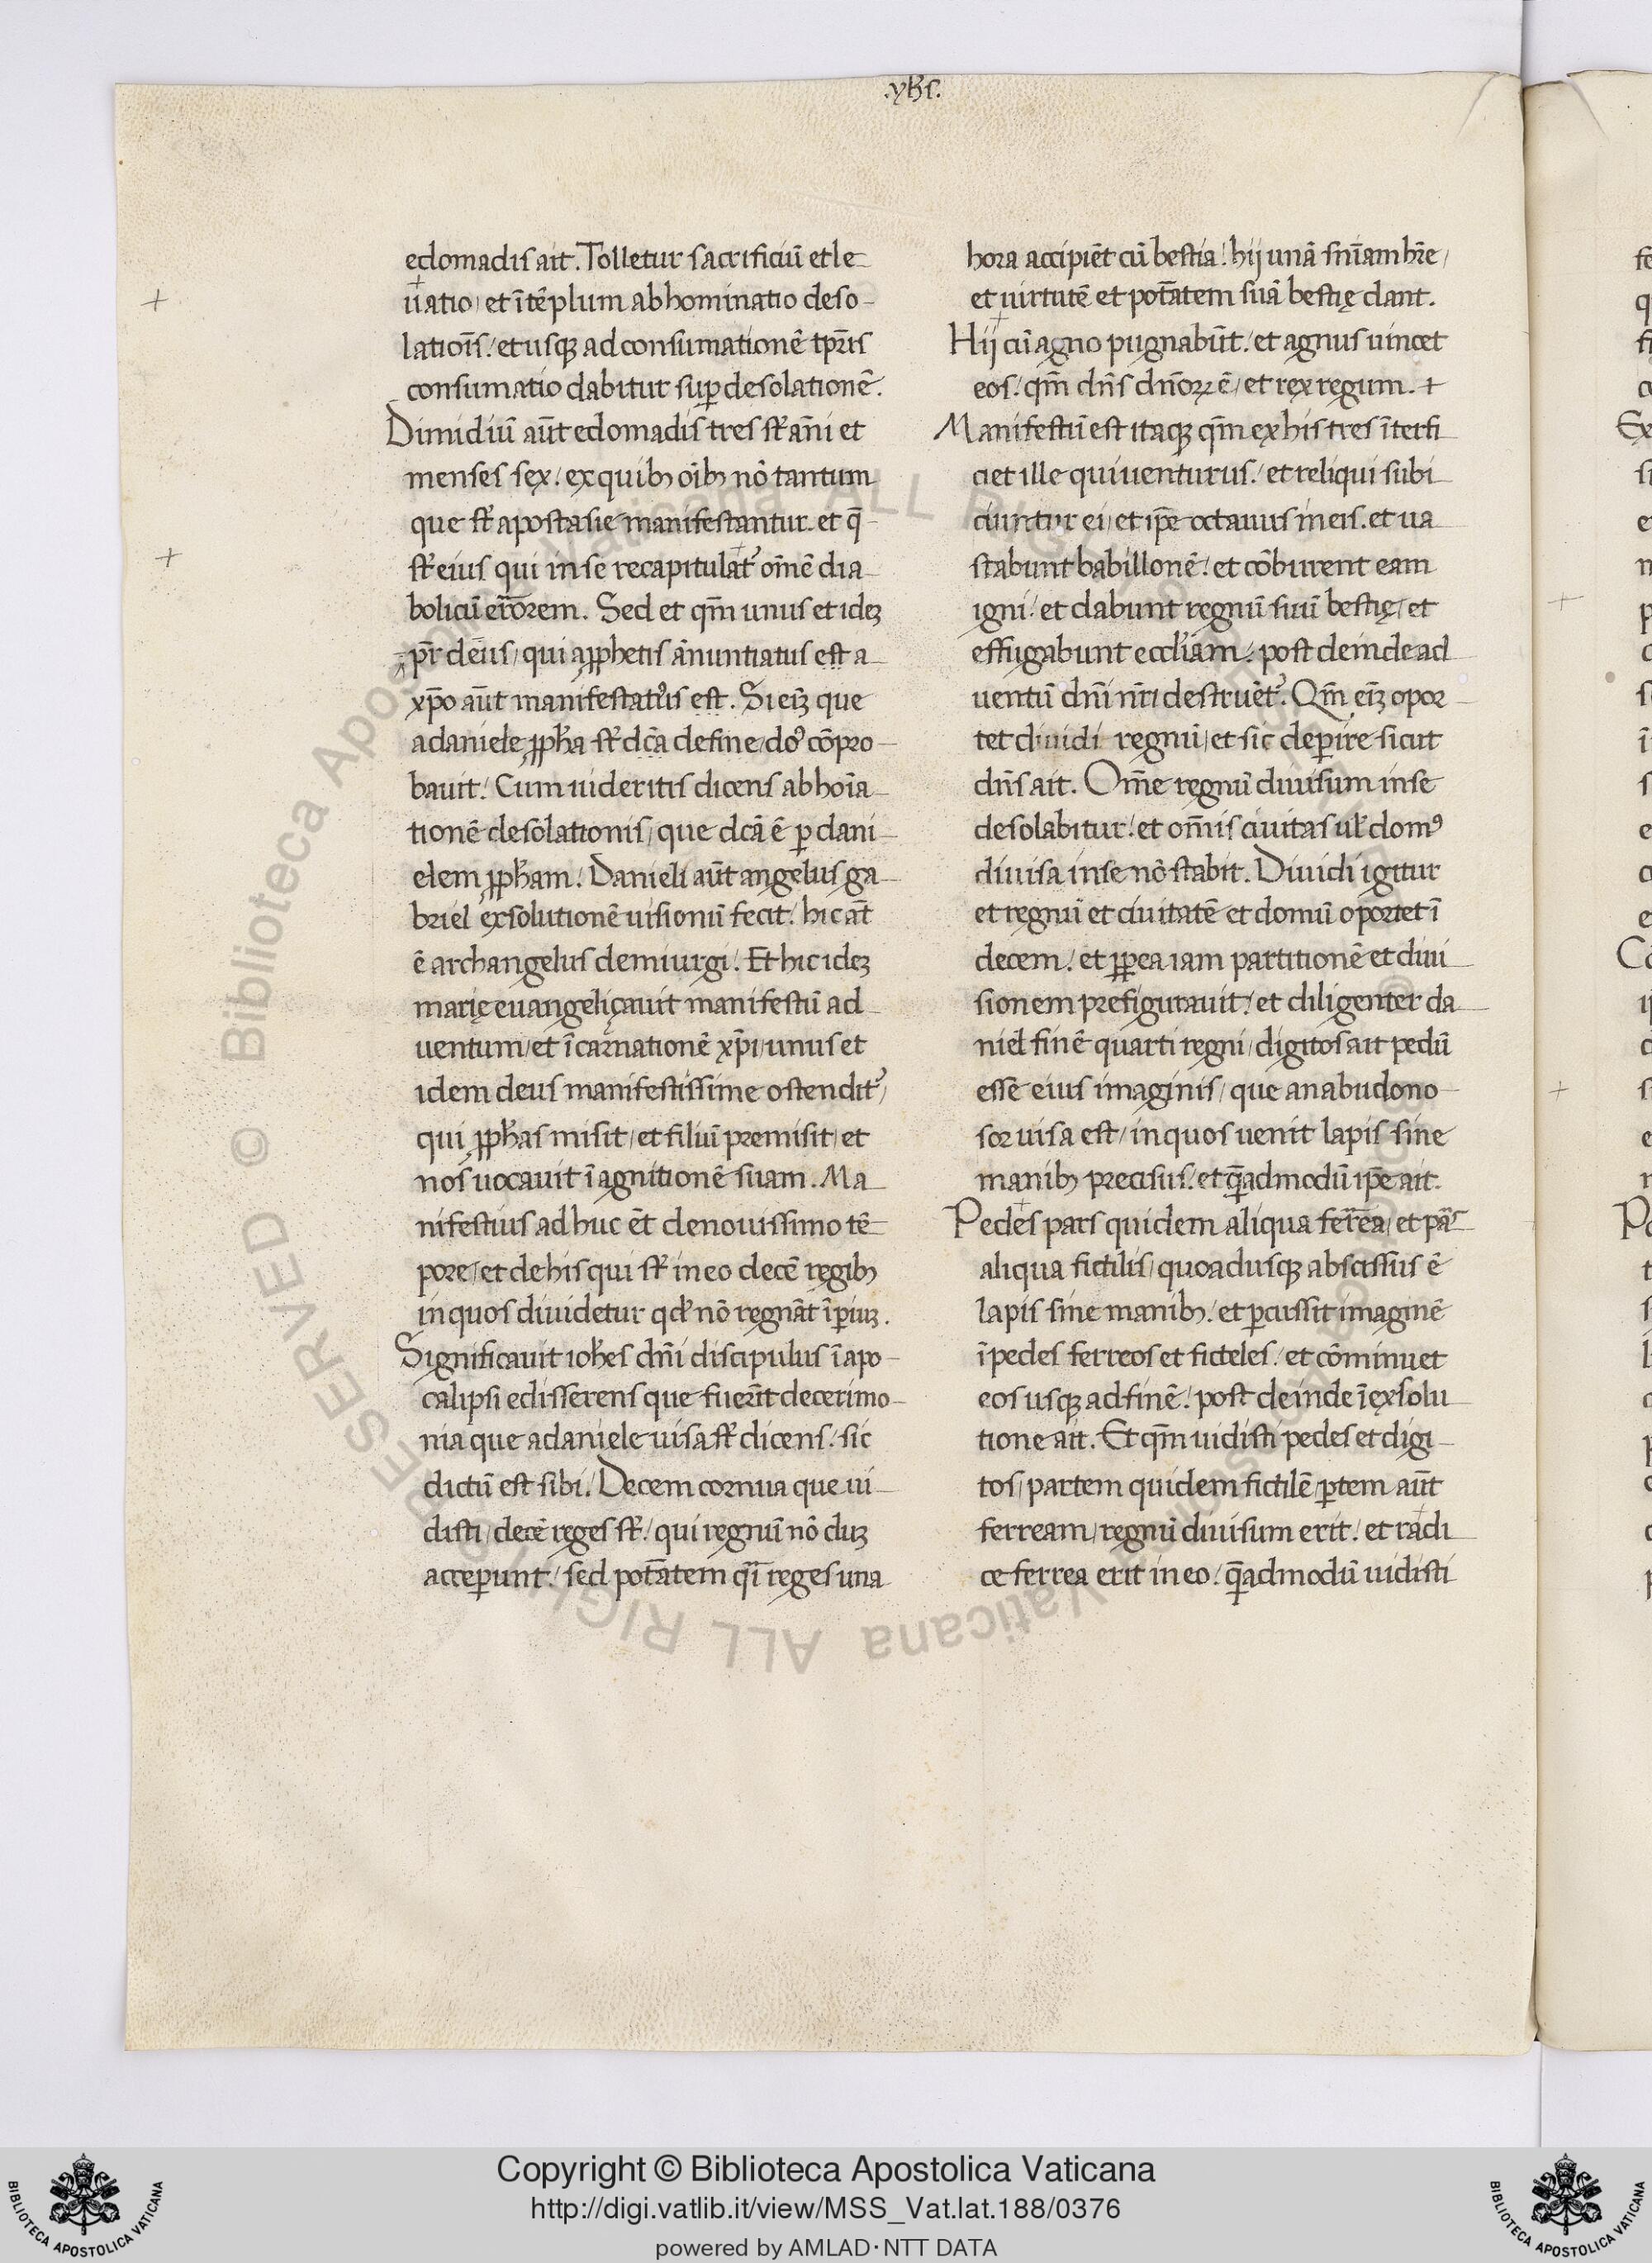 .yħs.
edomadis ait. Tolletur sacrificiū et le
uatio/ et ītēplum abhominatio deso-
latiōis/. et usqꝫ ad consumationē tp̄ris
consumatio dabitur suꝑ desolationē.
Dimidiū aūt edomadis tres st̄ āni et
menses sex/. ex quibꝫ oībꝫ nō tantum
que st̄ apostasie manifestantur. et q̄-
st̄ eius qui in se recapitulat᷒ om̄ē dia
bolicū errorem. Sed et qm̄ unus et ideꝫ
pr̄ deus/ qui a ꝓphetis ānuntiatus est a
xp̄o aūt manifestatus est. Si eīꝫ que
a daniele ꝓph̄a st̄ dc̄a de fine/ do᷒ cōpro-
bauit/. Cum uideritis dicens abhoīa
tionē desolationis/ que dcā ē ꝑ dani-
elem ꝓph̄am/. Danieli aūt angelus ga
briel exsolutionē uisionū fecit/. hic aūt
ē archangelus demiurgi/. Et hic ideꝫ
marię euangeliçauit manifestū ad
uentum/ et īcarnationē xp̄i/ unus et
idem deus manifestissime ostendit᷒/
qui ꝓph̄as misit/ et filiū premisit/ et
nos uocauit ī agnitionē suam. Ma
nifestius adhuc ēt de nouissimo tē
pore/ et de his qui st̄ in eo decē regibꝫ
in quos diuidetur qd̄ nō regnāt īꝑiuꝫ.
Significauit ioh̄es dn̄i discipulus ī apo-
calipsi edisserens que fuerīt decerimo-
nia que a daniele uisa st̄ dicens/. sic
dictū est sibi/. Decem cornua que ui
disti/ decē reges st̄/. qui regnū nō duꝫ
acceꝑunt/. sed pot̄atem q̄i reges una
hora accipiēt cū bestia/. hij unā sn̄iam hr̄e/
et uirtutē et pot̄atem suā bestię dant.
Hij cū agno pugnabūt/. et agnus uincet
eos/. qm̄ dn̄s dn̄oꝝ ē/ et rex regum. +
Manifestū est itaqꝫ qm̄ ex his tres īterfi
ciet ille qui uenturus/. et reliqui subi
ciuntur ei/ et ip̄e octauus in eis. et ua
stabunt babillonē/. et cōburent eam
igni/. et dabunt regnū suū bestię/ et
effugabunt eccl̄iam/. post deinde ad
uentū dn̄i nr̄i destruēt᷒. Qm̄ eīꝫ opor-
tet diuidi regnū/ et sic deꝑire sicut
dn̄s ait. Om̄e regnū diuisum in se
desolabitur/. et om̄is ciuitas ul̄ domꝰ
diuisa in se nō stabit. Diuidi igitur
et regnū et ciuitatē et domū oportet ī
decem/. et ꝓpea iam partitionē et diui
sionem prefigurauit/. et diligenter da
niel finē quarti regni/ digitos ait pedū
esse eius imaginis/ que a nabudono-
sor uisa est/ in quos uenit lapis sine
manibꝫ precisus/. et quēadmodū ip̄e ait.
Pedes pars quidem aliqua ferrea/ et pars
aliqua fictilis/ quoadusqꝫ abscissus ē
lapis sine manibꝫ/. et ꝑcussit imaginē
ī pedes ferreos et ficteles/. et cōminuet
eos usqꝫ ad finē/. post deinde ī exsolu
tione ait. Et qm̄ uidisti pedes et digi-
tos/ partem quidem fictilē/ ꝑtem aūt
ferream/ regnū diuisum erit/. et radi
ce ferrea erit in eo/. quēadmodū uidisti
Copyright © Biblioteca Apostolica Vaticana
http://digi.vatlib.it/view/MSS_Vat.lat.188/0376
powered by AMLAD·NTT DATA